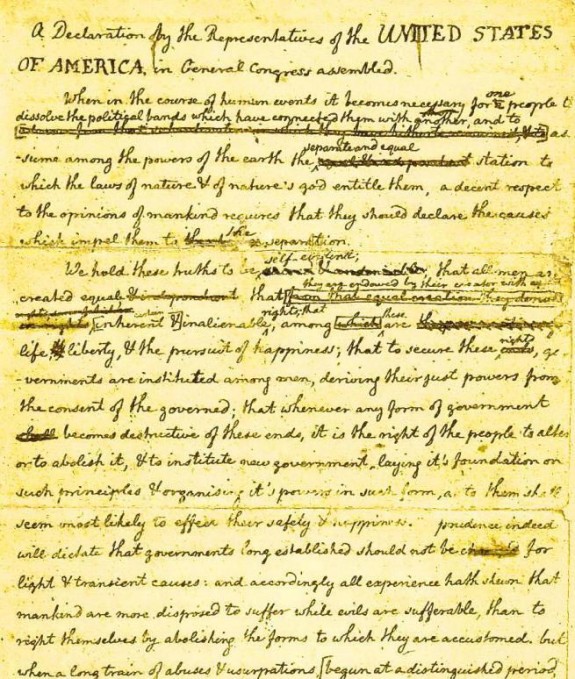 A Declaration by the Representatives of the UNITED STATES
OF AMERICA, in General Congress assembled.
When in the course of human events it becomes necessary for one people t
dissolve the political bands which have connected them with another, and to
as
-sume among the powers of the earth the separate and equal station to
which the laws of nature & of nature's god entitle them, a decent respect
to the opinions of mankind requires that they should declare the causes
which impel them to the separation.
We hold these truths to be self-evident; that all men ar
created equal & independent that they are endowed by their creator with
from that equal creation they derive
rights, that these
inherent & inalienable, among which are
life & liberty, & the pursuit of happiness; that to secure these rights, go
-vernments are instituted among men, deriving their just powers from
the consent of the governed; that whenever any form of government
shall becomes destructive of these ends, it is the right of the people to alter
or to abolish it, & to institute new government, laying it's foundation on
such principles & organising it's powers in such form, as to them sh
seem most likely to effect their safety & happiness. prudence indeed
will dictate that governments long established should not be for
light & transient causes: and accordingly all experience hath shewn that
mankind are more disposed to suffer while evils are sufferable, than to
right themselves by abolishing the forms to which they are accustomed. but
when a long train of abuses & usurpations [begun at a distinguished period,